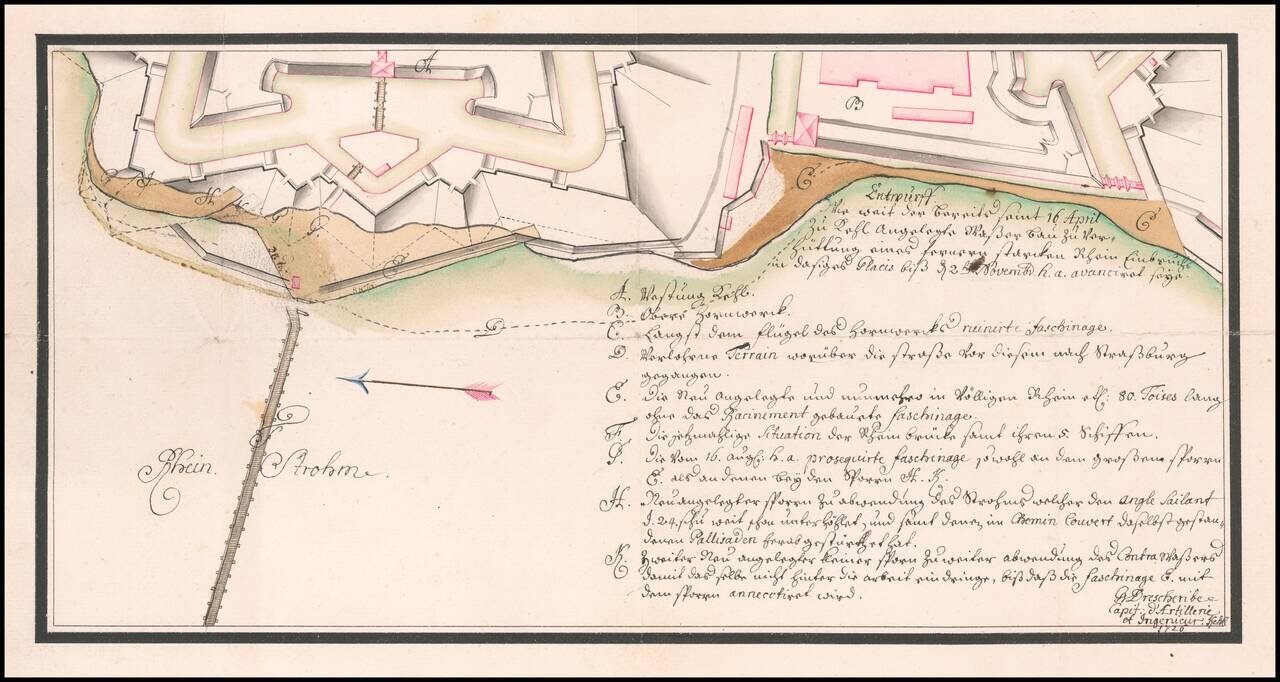 A.
B
C
C
D
E
F
G
H
Entwurff
Wie weit der bereits samt 16 April
zu Kehl Angelegte Waßer bau zu Ver-
hüttung eines fernern starcken Rhein Einbruchs
in dasiges Glacis biß d 2ten Novembr h. a. avanciret seye
A. Vestung Kehl.
B. Obere Hornwerck.
C. Langst dem flügel des Hornwercks ruinirte faschinage.
D. Verlohrne Terrain worüber die straße vor diesem nach Straßburg
gegangen.
E. Die Neu Angelegte und nunmehro in Völligen Rhein etl: 80. Toises lang
ohne das Racinement gebauete faschinage.
F. Die jetzmahlige Situation der Rhein brücke samt ihren 5. Schiffen.
G. Die vom 16. Aug. h. a. prosequirte faschinage sowohl an dem großen sporrn
E. als an denen beyden Sporrn H. K.
H. Neu angelegter sporrn zu abwendung des Strohms welcher den angle Sailant
J. 24. schu weit schon unterhöhlet, und samt denen im Chemin Couvert daselbst gestan-
denen Pallisaden herab gestürtzet hat.
K. Zweiter Neu angelegter kleiner sporn zu weiter abwendung des Contra Waßers
damit das selbe nicht hinter die arbeit eindringe, biß daß die faschinage E. mit
dem sporrn annectiret wird.
Rhein. Strohm.
Capit: d'Artillerie
et Ingenieur: Kehl